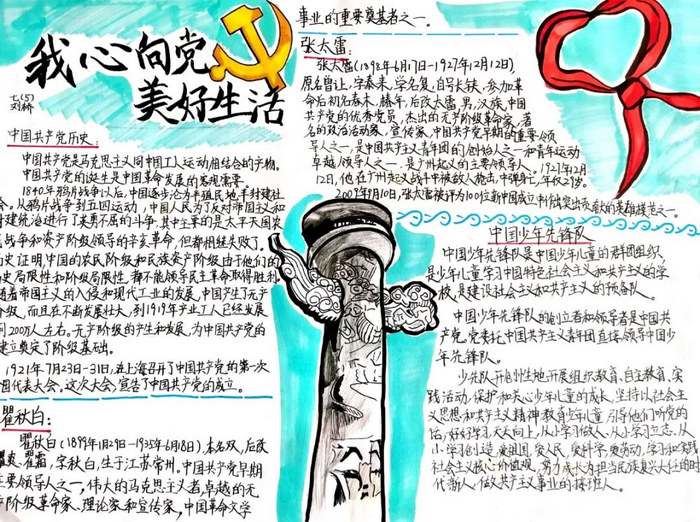 我心向党
美好生活
七(5)
中国共产党历史:
中国共产党是马克思主义同中国工人运动相结合的产物。
中国共产党的诞生是中国革命发展的客观需要。
1840年鸦片战争以后,中国逐步沦为半殖民地半封建社
会。从鸦片战争到五四运动,中国人民为了反对帝国主义和
封建统治进行了英勇不屈的斗争。其中主要的是太平天国农
民战争和资产阶级领导的辛亥革命,但都相继失败了。
历史证明,中国的农民阶级和民族资产阶级由于他们的
历史局限性和阶级局限性,都不能领导民主革命取得胜利。
随着帝国主义的入侵和现代工业的发展,中国产生了无产
阶级,而且在不断发展壮大,到1919年产业工人已经发展
到200万人左右。无产阶级的产生和发展,为中国共产党的
建立奠定了阶级基础。
1921年7月23日-31日,在上海召开了中国共产党的第一次
全国代表大会,这次大会,宣告了中国共产党的成立。
瞿秋白:
瞿秋白(1899年1月29日-1935年6月18日),本名双,后改
瞿爽、瞿霜,字秋白,生于江苏常州,中国共产党早期
主要领导人之一,伟大的马克思主义者,卓越的无
产阶级革命家、理论家和宣传家,中国革命文学
事业的重要奠基者之一。
张太雷:
张太雷(1898年6月17日-1927年12月12日),
原名曾让,字泰来,学名复,自号长铗,参加革
命后初名春木、椿年,后改太雷,男,汉族,中国
共产党的优秀党员,杰出的无产阶级革命家,著
名的政治活动家、宣传家,中国共产党早期的重要领
导人之一,是中国共产主义青年团的创始人之一和青年运动
卓越领导人之一,是广州起义的主要领导人。1927年12月
12日,他在广州起义战斗中被敌人枪击,中弹身亡,年仅29岁。
2009年9月10日,张太雷被评为100位新中国成立作出突出贡献的英雄模范之一。
中国少年先锋队
中国少年先锋队是中国少年儿童的群团组织,
是少年儿童学习中国特色社会主义和共产主义的学
校,是建设社会主义和共产主义的预备队。
中国少年先锋队的创立者和领导者是中国共
产党,党委托中国共产主义青年团直接领导中国少
年先锋队。
少先队开创性地开展组织教育、自主教育、实
践活动,保护和关心少年儿童的成长,坚持以社会主
义思想和共产主义精神教育少年儿童,引导他们听党的
话,好好学习,天天向上,从小学习做人、从小学习立志、从
小学习创造,爱祖国、爱人民、爱科学、爱劳动,学习和实践
社会主义核心价值观,努力成长为担当民族复兴大任的时
代新人,做共产主义事业的接班人。